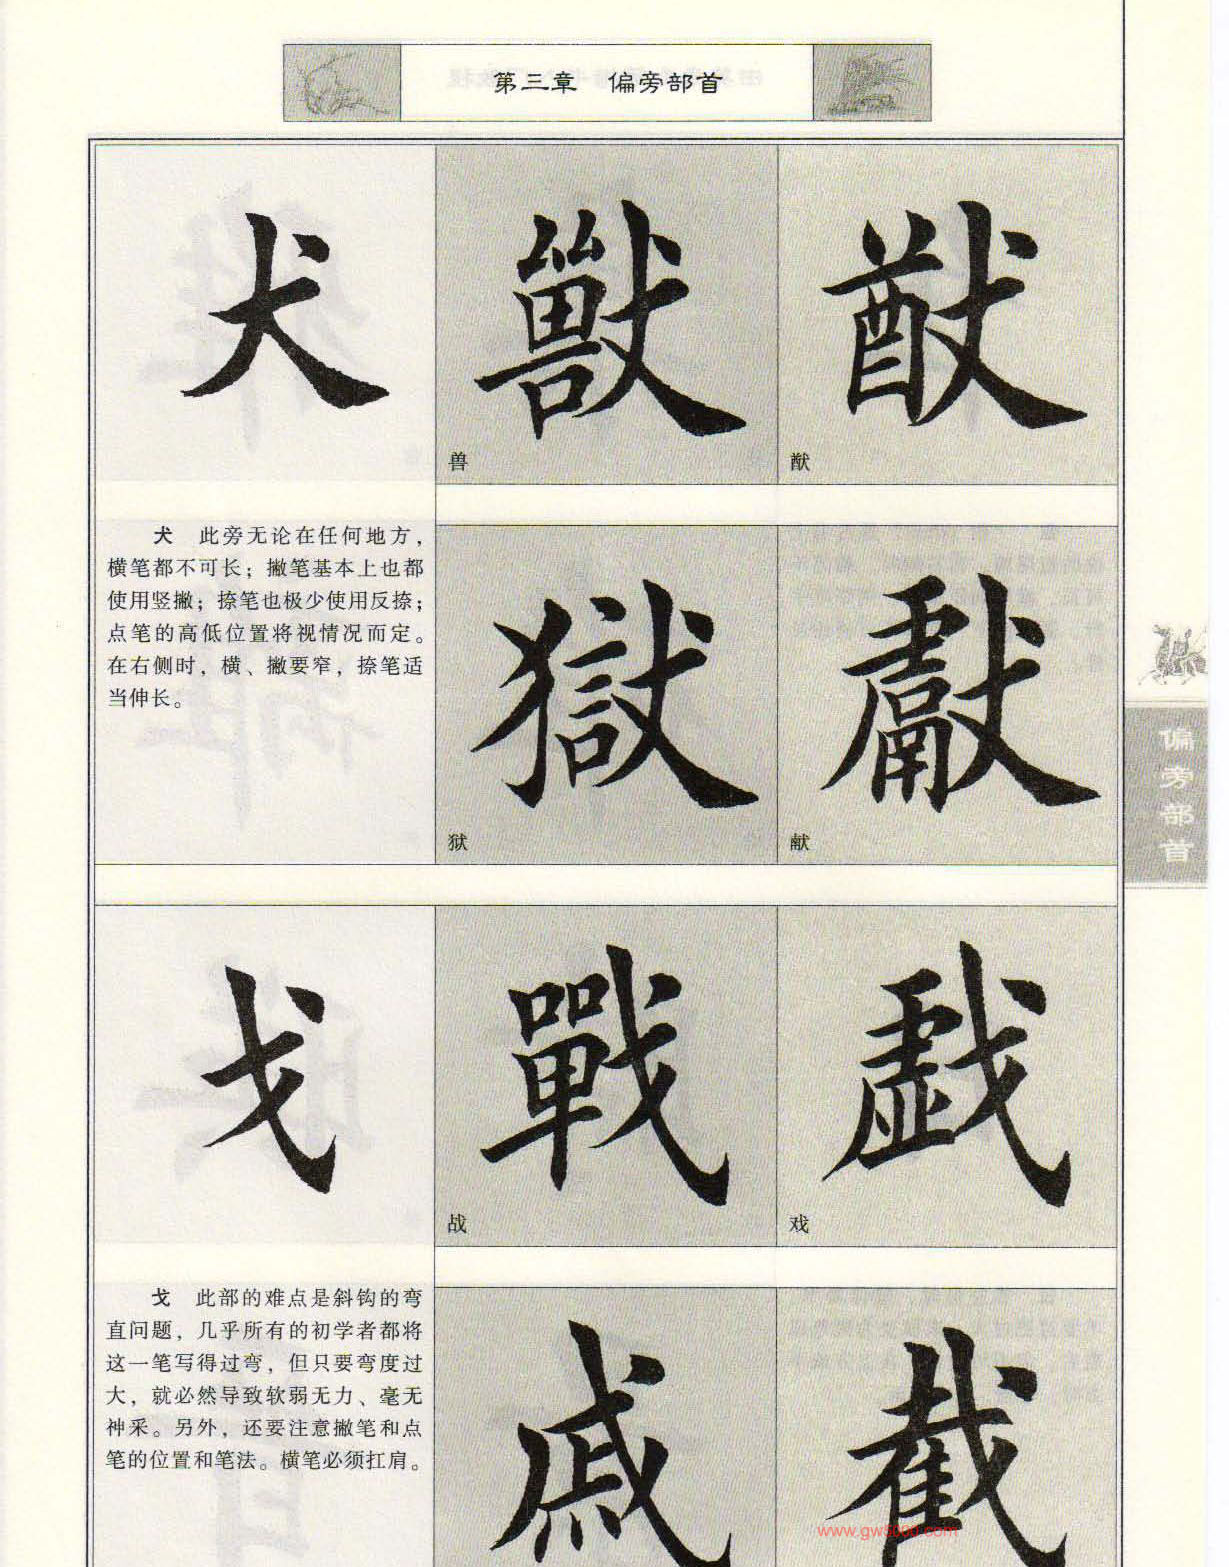 第三章 偏旁部首
犬
獸
猷
兽
猷
犬 此旁无论在任何地方，
横笔都不可长；撇笔基本上也都
使用竖撇；捺笔也极少使用反捺；
点笔的高低位置将视情况而定。
在右侧时，横、撇要窄，捺笔适
当伸长。
獄
獻
狱
献
偏旁部首
戈
戰
戲
战
戏
戈 此部的难点是斜钩的弯
直问题，几乎所有的初学者都将
这一笔写得过弯，但只要弯度过
大，就必然导致软弱无力、毫无
神采。另外，还要注意撇笔和点
笔的位置和笔法。横笔必须扛肩。
戚
截